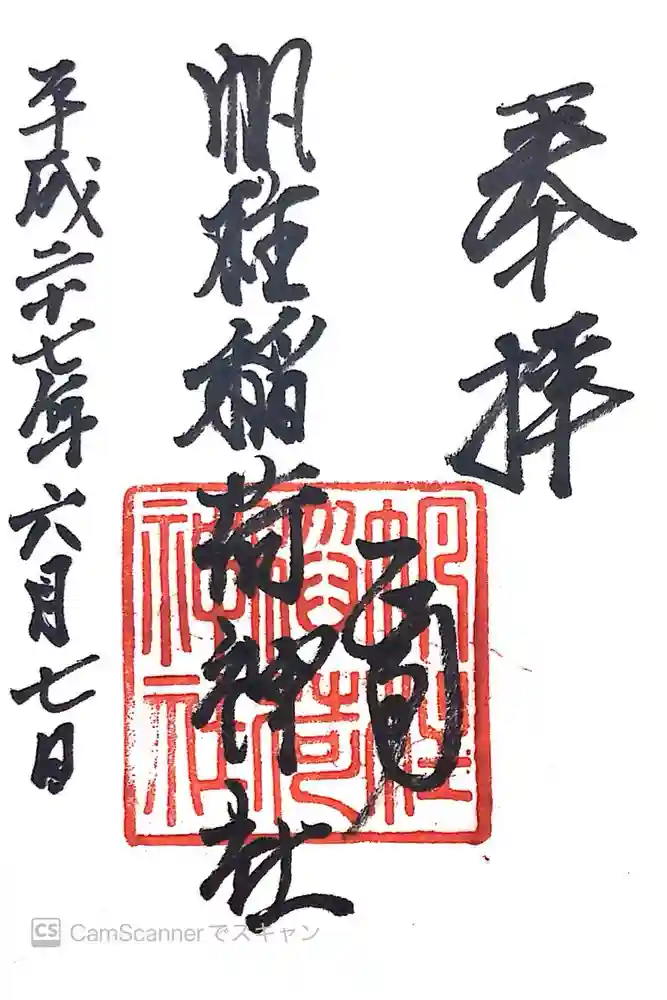 奉拝
帆柱稲荷神社
平成二十七年六月七日
CS CamScannerでスキャン